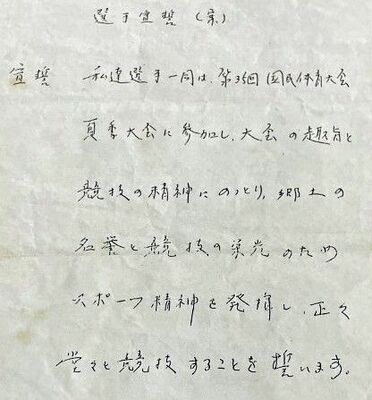 選手宣誓(案)
宣誓 私達選手一同は、第31回国民体育大会
夏季大会に参加し、大会の趣旨と
競技の精神にのっとり、郷土の
名誉と競技の栄光のため
スポーツ精神を発揮し、正々
堂々と競技することを誓います。